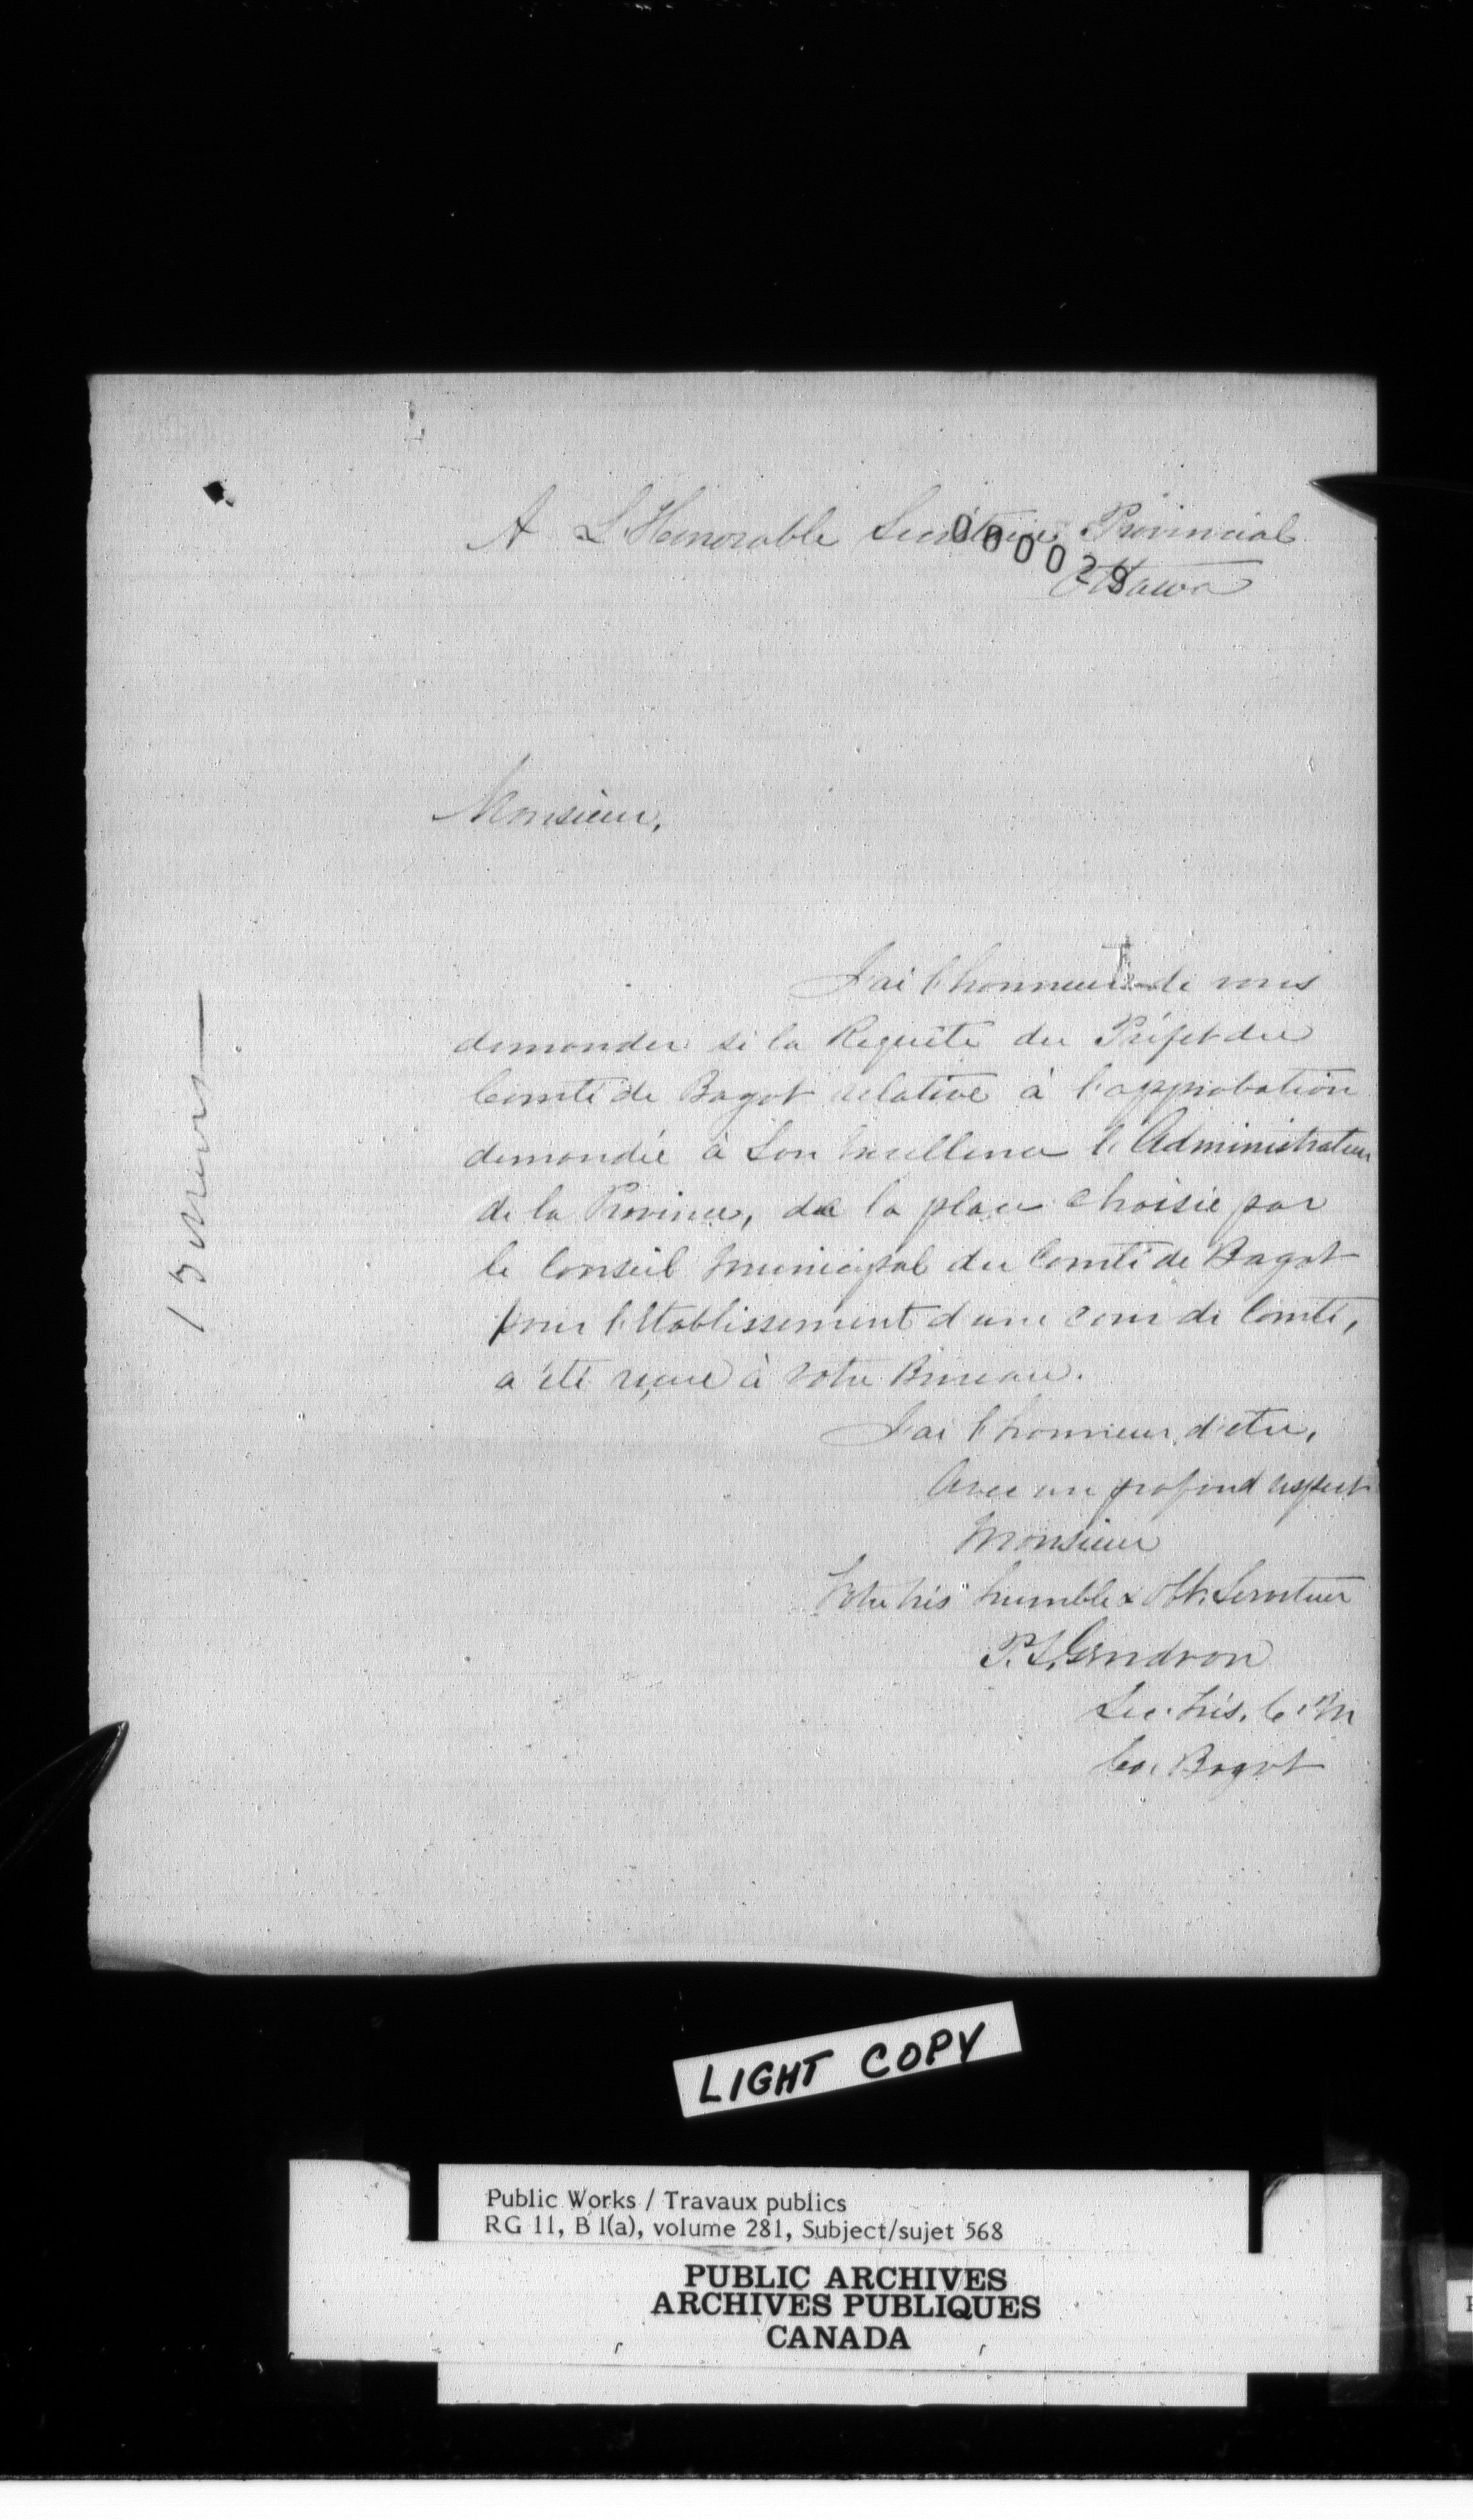 A L'Honorable Secrétaire Provincial
000029
Ottawa
Monsieur,
J'ai l'honneur de vous
demander si la Requête du Préfet du
Comté de Bagot relative à l'approbation
demandée à Son Excellence l'Administrateur
de la Province, de la place choisie par
le Conseil Municipal du Comté de Bagot
pour l'Etablissement d'une cour de Comté,
a été reçue à votre Bureau.
J'ai l'honneur d'etre,
Avec un profond respect
Monsieur
Votre très humble & Obt. Serviteur
P. S. Gendron
Sec. trés. C. M
Co. Bagot
LIGHT COPY
Public Works / Travaux publics
RG 11, B 1(a), volume 281, Subject/sujet 568
PUBLIC ARCHIVES
ARCHIVES PUBLIQUES
CANADA